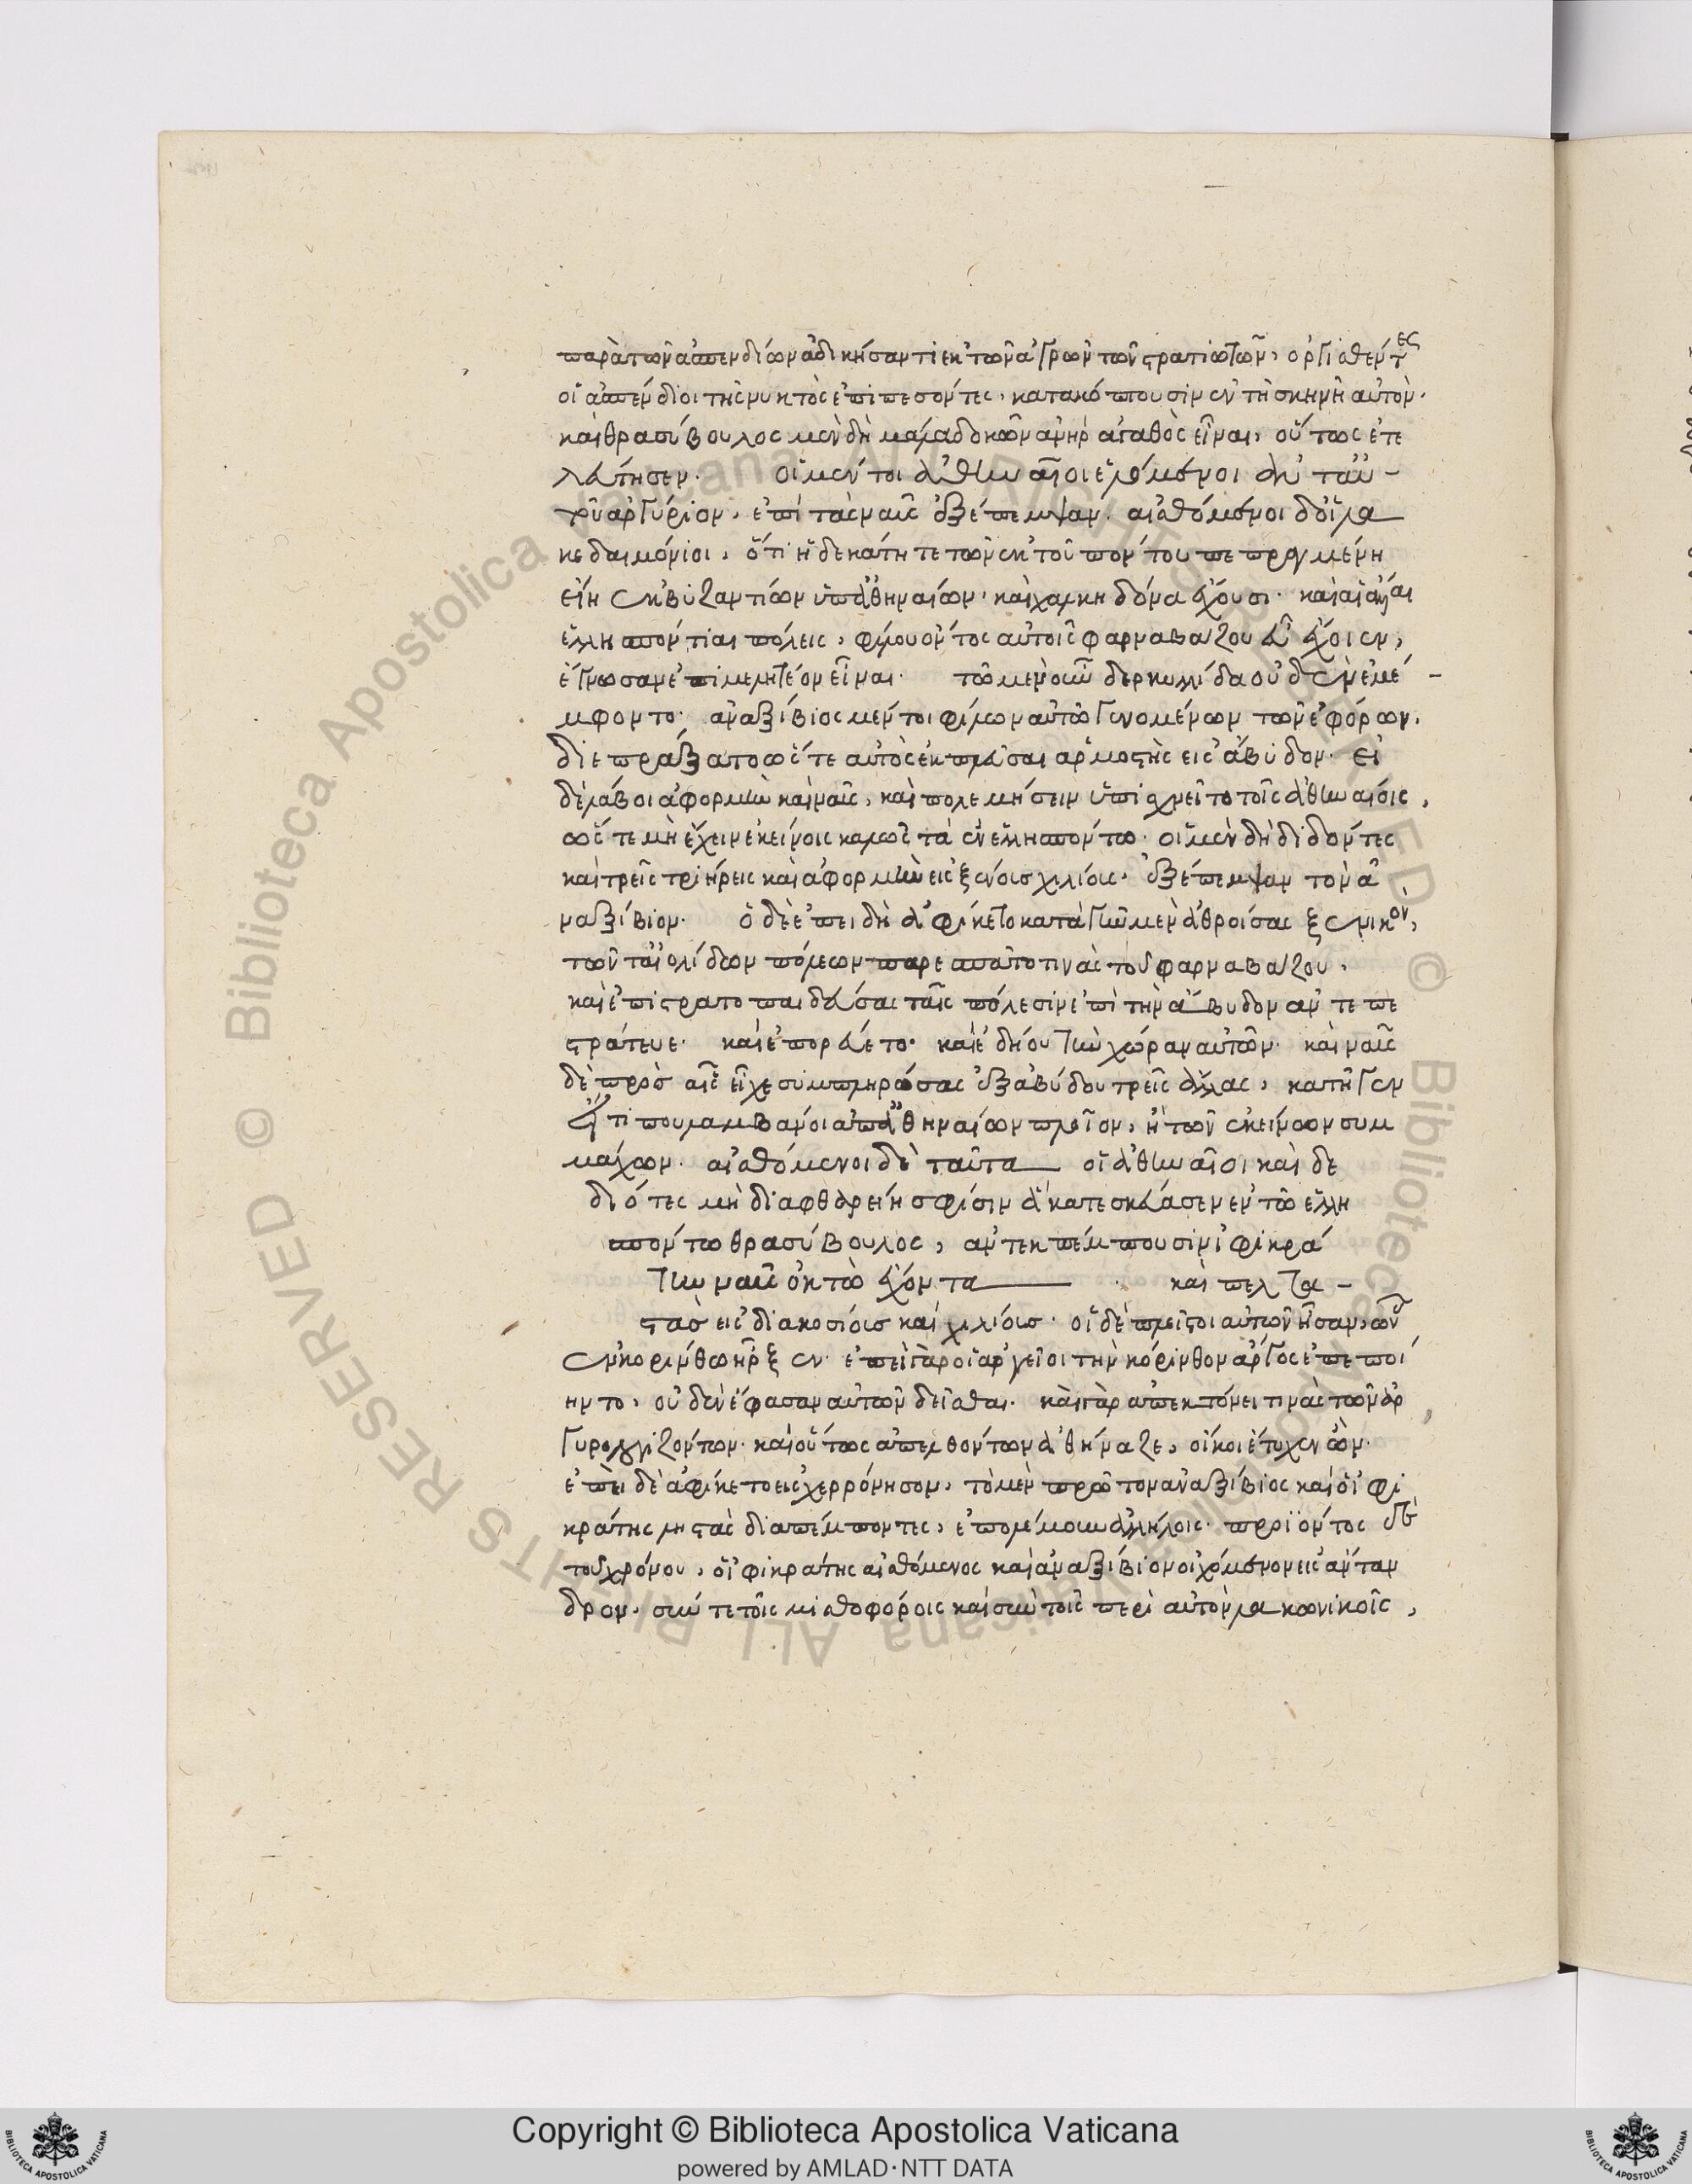 παρὰ τῶν ἀσπενδίων ἀδικησάντι ἐκ τῶν ἀγρῶν τῶν στρατιωτῶν, ὀργισθέντες
οἱ ἀσπένδιοι τῆς νυκτὸς ἐπιπεσόντες, κατακόπτουσιν ἐν τῆ σκηνῆ αὐτόν.
καὶ θρασύβουλος μὲν δὴ μάλα δοκῶν ἀνὴρ ἀγαθὸς εἶναι, οὕτως ἐτε
λεύτησεν. οἱ μέντοι ἀθηναῖοι ἑλόμενοι ἀντ' αὐ-
τοῦ ἀργύριον, ἐπὶ τὰς ναῦς ἐξέπεμψαν. αἰσθόμενοι δ' οἱ λα
κεδαιμόνιοι, ὅτι ἡ δεκάτη τε τῶν ἐκ τοῦ πόντου πεπραγμένη
εἴη ἐν βυζαντίων ὑπ' ἀθηναίων. καὶ χαλκηδόνα ἔχουσι. καὶ αἱ ἄλλαι
ἑλλησπόντιαι πόλεις, φίλου ὄντος αὐτοῖς φαρναβάζου εὖ ἔχοιεν,
ἔγνωσαν ἐπιμελητέον εἶναι. τῶ μὲν οὖν δερκυλλίδα οὐδὲν ἐμέ-
μφοντο. ἀναξίβιος μέντοι φίλων αὐτῶ γενομένων τῶν ἐφόρων,
διεπράξατο ὥστε αὐτὸς ἐκπλεῦσαι ἁρμοστὴς εἰς ἄβυδον. εἰ
δὲ λάβοι ἀφορμὴν καὶ ναῦς, καὶ πολεμήσειν ὑπισχνεῖτο τοῖς ἀθηναίοις,
ὥστε μὴ ἔχειν ἐκείνοις καλῶς τὰ ἐν ἑλλησπόντω. οἱ μὲν δὴ διδόντες
καὶ τρεῖς τριήρεις καὶ ἀφορμὴν εἰς ξένους χιλίους, ἐξέπεμψαν τὸν ἀ
ναξίβιον. ὁ δὲ ἐπειδὴ ἀφίκετο κατὰ γῆν μὲν ἀθροίσας ξενικὸν,
τῶν τ' αἰολίδων πόλεων παρεσπᾶτό τινας τοῦ φαρναβάζου,
καὶ ἐπιστρατοπαιδεύσας ταῖς πόλεσιν ἐπὶ τὴν ἄβυδον ἀντεπε
στράτευε. καὶ ἐπορεύετο. καὶ ἐδήου τὴν χώραν αὐτῶν. καὶ ναῦς
δὲ πρὸς αἷς εἶχε συμπληρώσας ἐξ ἀβύδου τρεῖς ἄλλας, κατῆγεν
εἴ τι που λαμβάνοι ἀπ' ἀθηναίων πλοῖον, ἢ τῶν ἐκείνων συμ
μάχων. αἰσθόμενοι δὲ ταῦτα οἱ ἀθηναῖοι καὶ δε
διότες μὴ διαφθαρείη σφίσιν ἃ κατεσκεύασεν ἐν τῶ ἑλλη
σπόντω θρασύβουλος, ἀντεκπέμπουσιν ἰφικρά
την ναῦς ὀκτὼ ἔχοντα καὶ πελτα-
στὰς εἰς διακοσίους καὶ χιλίους. οἱ δὲ πλεῖστοι αὐτῶν ἦσαν, ὧν
ἐν κορίνθω ἦρξεν. ἐπεὶ γὰρ οἱ ἀργεῖοι τὴν κόρινθον ἄργος ἐπεποί
ηντο, οὐδὲν ἔφασαν αὐτῶν δεῖσθαι. καὶ γὰρ ἀπεκτόνει τινὰς τῶν ἀρ
γυρολγιζόντων. καὶ οὕτως ἀπελθόντων ἀθήναζε, οἴκοι ἔτυχεν ὤν.
ἐπεὶ δὲ ἀφίκετο εἰς χερρόνησον, τὸ μὲν πρῶτον ἀναξίβιος καὶ ὁ ἰφι
κράτης ληστὰς διαπέμποντες, ἐπολέμουν ἀλλήλοις. προϊόντος δὲ
τοῦ χρόνου, ὁ ἰφικράτης αἰσθόμενος καὶ ἀναξίβιον οἰχόμενον εἰς ἄνταν
δρον. σύν τε τοῖς μισθοφόροις καὶ σὺν τοῖς περὶ αὐτὸν λακωνικοῖς,
Copyright © Biblioteca Apostolica Vaticana
powered by AMLAD·NTT DATA